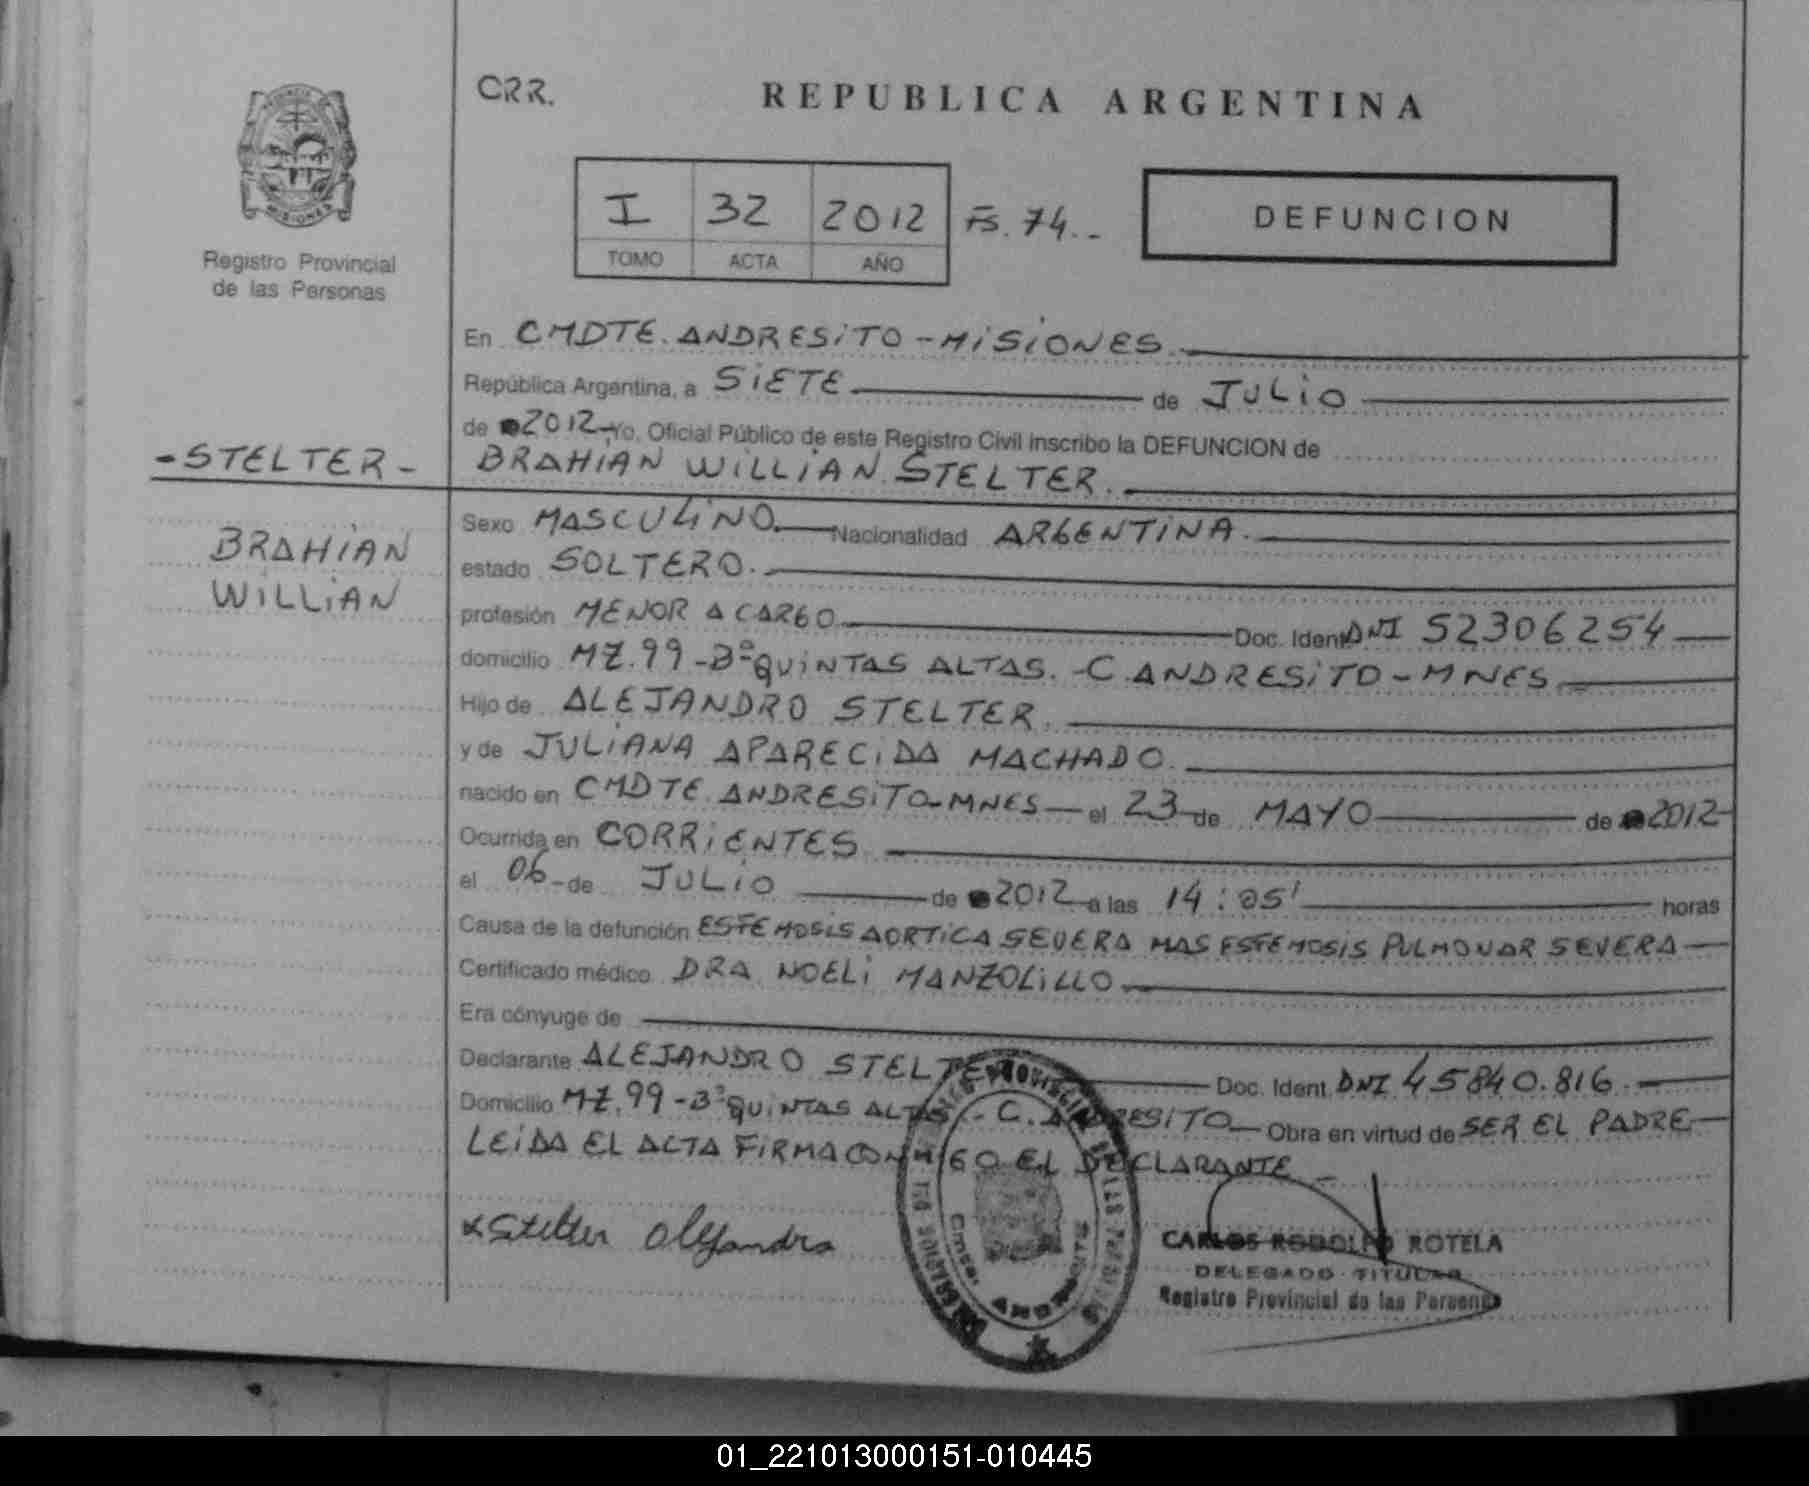 CRR.
REPUBLICA ARGENTINA
PROVINCIA DE
MISIONES
Registro Provincial
de las Personas
I 32 2012 FS. 74..
TOMO ACTA AÑO
DEFUNCION
En CMDTE. ANDRESiTO - MiSiONES.
República Argentina, a SiETE de JULiO
de 2012 Yo, Oficial Público de este Registro Civil inscribo la DEFUNCION de
- STELTER -
BRAHiAN WiLLiAN STELTER.
BRAHiAN
WiLLiAN
Sexo MASCULiNO. Nacionalidad ARGENTiNA.
estado SOLTERO.
profesión MENOR A CARGO Doc. Ident. DNI 52306254
domicilio MZ. 99 - Bº QUiNTAS ALTAS. - C. ANDRESiTO - MNES.
Hijo de ALEJANDRO STELTER.
y de JULiANA APARECiDA MACHADO.
nacido en CMDTE. ANDRESiTO - MNES - el 23 de MAYO de 2012
Ocurrida en CORRiENTES
el 06 - de JULiO de 2012 a las 14:05' horas
Causa de la defunción ESTEMOSIS AORTiCA SEVERA MAS ESTEMOSIS PULMONAR SEVERA
Certificado médico DRA. NOELi MANZOLiLLO
Era cónyuge de
Declarante ALEJANDRO STELTER Doc. Ident. DNI 45840.816.
Domicilio MZ. 99 - Bº QUiNTAS ALTAS - C. ANDRESITO Obra en virtud de SER EL PADRE
LEiDA EL ACTA FiRMA CONMIGO EL DECLARANTE
x Stelter Alejandro
CARLOS RODOLFO ROTELA
DELEGADO TITULAR
Registro Provincial de las Personas
01_221013000151-010445